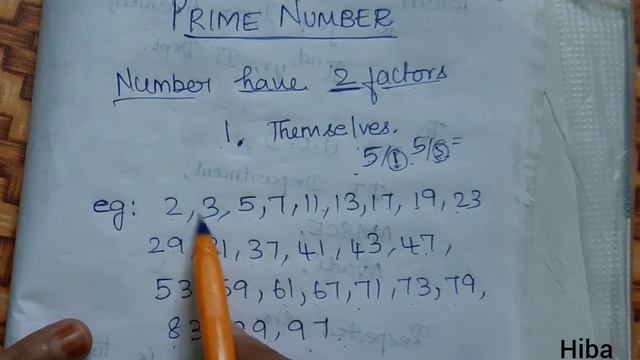 PRIME NUMBER
Number have 2 factors
1. Themselves.
5/1 5/5=
eg: 2, 3, 5, 7, 11, 13, 17, 19, 23
29, 31, 37, 41, 43, 47,
53, 59, 61, 67, 71, 73, 79,
83, 89, 97
Hiba